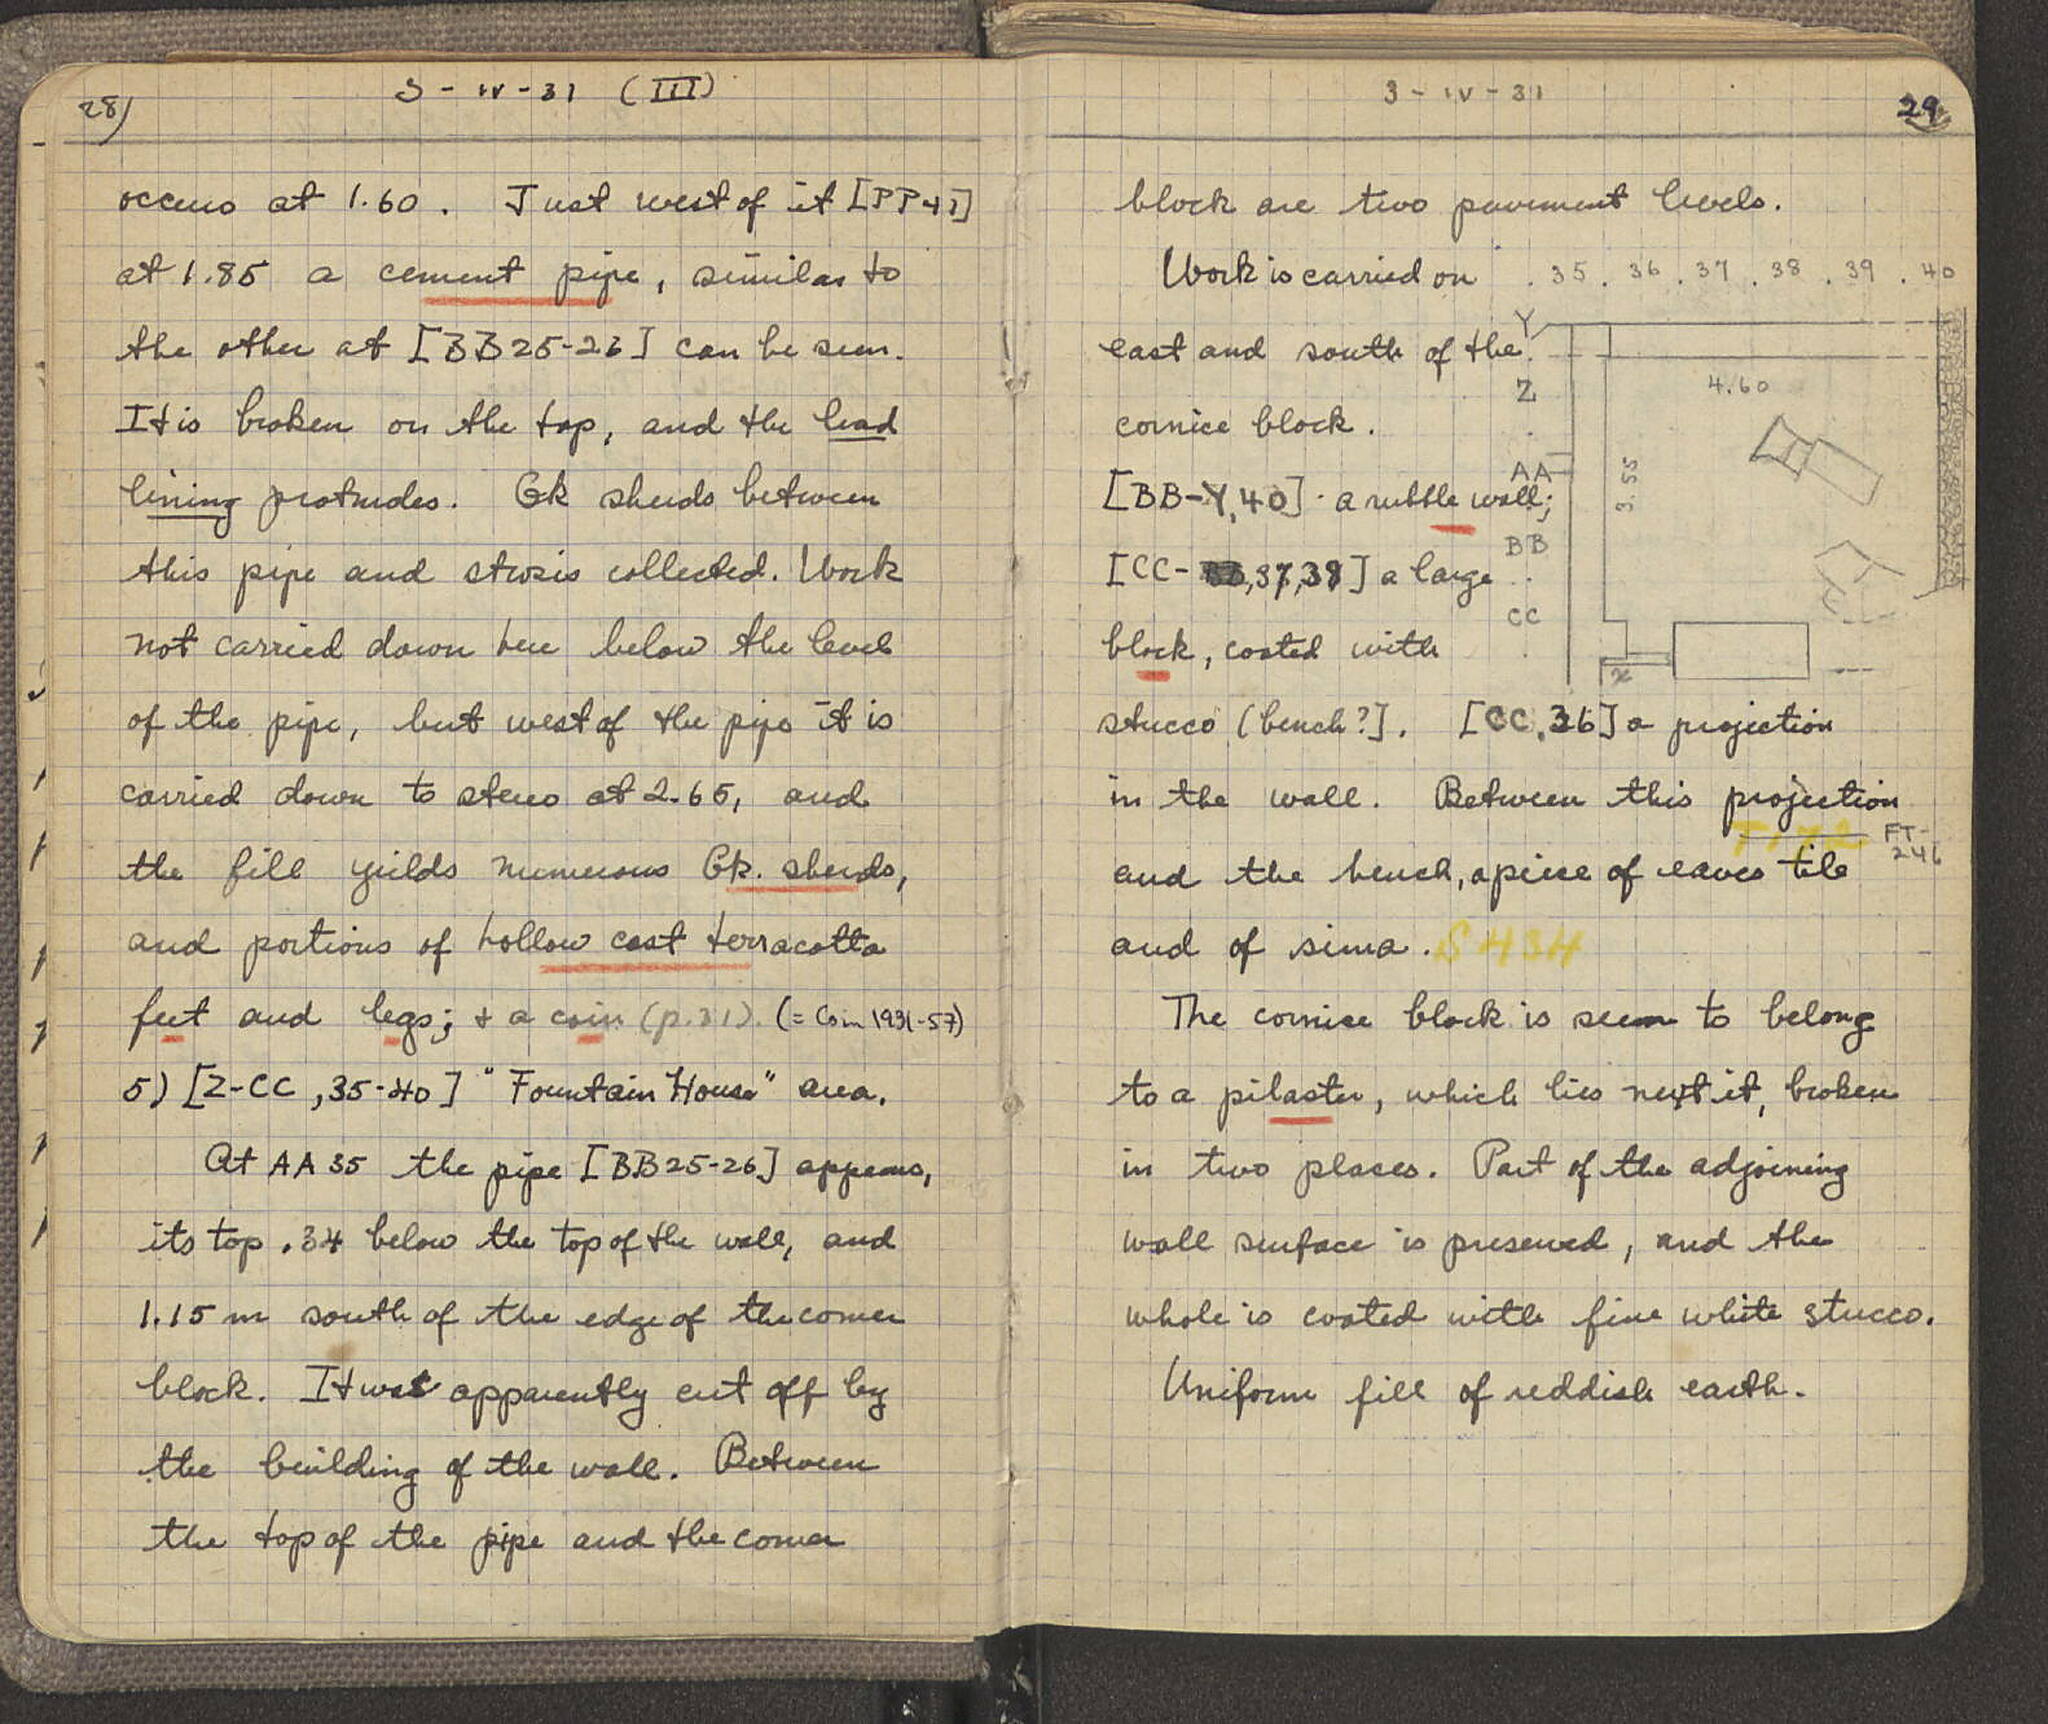 28)
3-IV-31 (III)
occurs at 1.60. Just west of it [PP41]
at 1.85 a cement pipe, similar to
the other at [BB25-26] can be seen.
It is broken on the top, and the lead
lining protrudes. Gk sherds between
this pipe and stosis collected. Work
not carried down here below the level
of the pipe, but west of the pipe it is
carried down to stereo at 2.65, and
the fill yields numerous Gk. sherds,
and portions of hollow cast terracotta
feet and legs; + a coin (p.31). (= Coin 1931-57)
5) [Z-CC, 35-40] "Fountain House" area.
At AA 35 the pipe [BB25-26] appears,
its top .34 below the top of the wall, and
1.15 m south of the edge of the corner
block. It was apparently cut off by
the building of the wall. Between
the top of the pipe and the corner
3-IV-31
29
block are two pavement levels.
Work is carried on
east and south of the
cornice block.
[BB-Y,40] · a rubble wall;
[CC- ,37,38] a large
block, coated with
stucco (bench?]. [CC.36] a projection
in the wall. Between this projection
T172 FT-
246
and the bench, a piece of eaves tile
and of sima. S 434
The cornice block is seen to belong
to a pilaster, which lies next it, broken
in two places. Part of the adjoining
wall surface is preserved, and the
whole is coated with fine white stucco.
Uniform fill of reddish earth.
. 35 . 36 . 37 . 38 . 39 . 40
Y
Z
AA
BB
CC
4.60
3.55
x